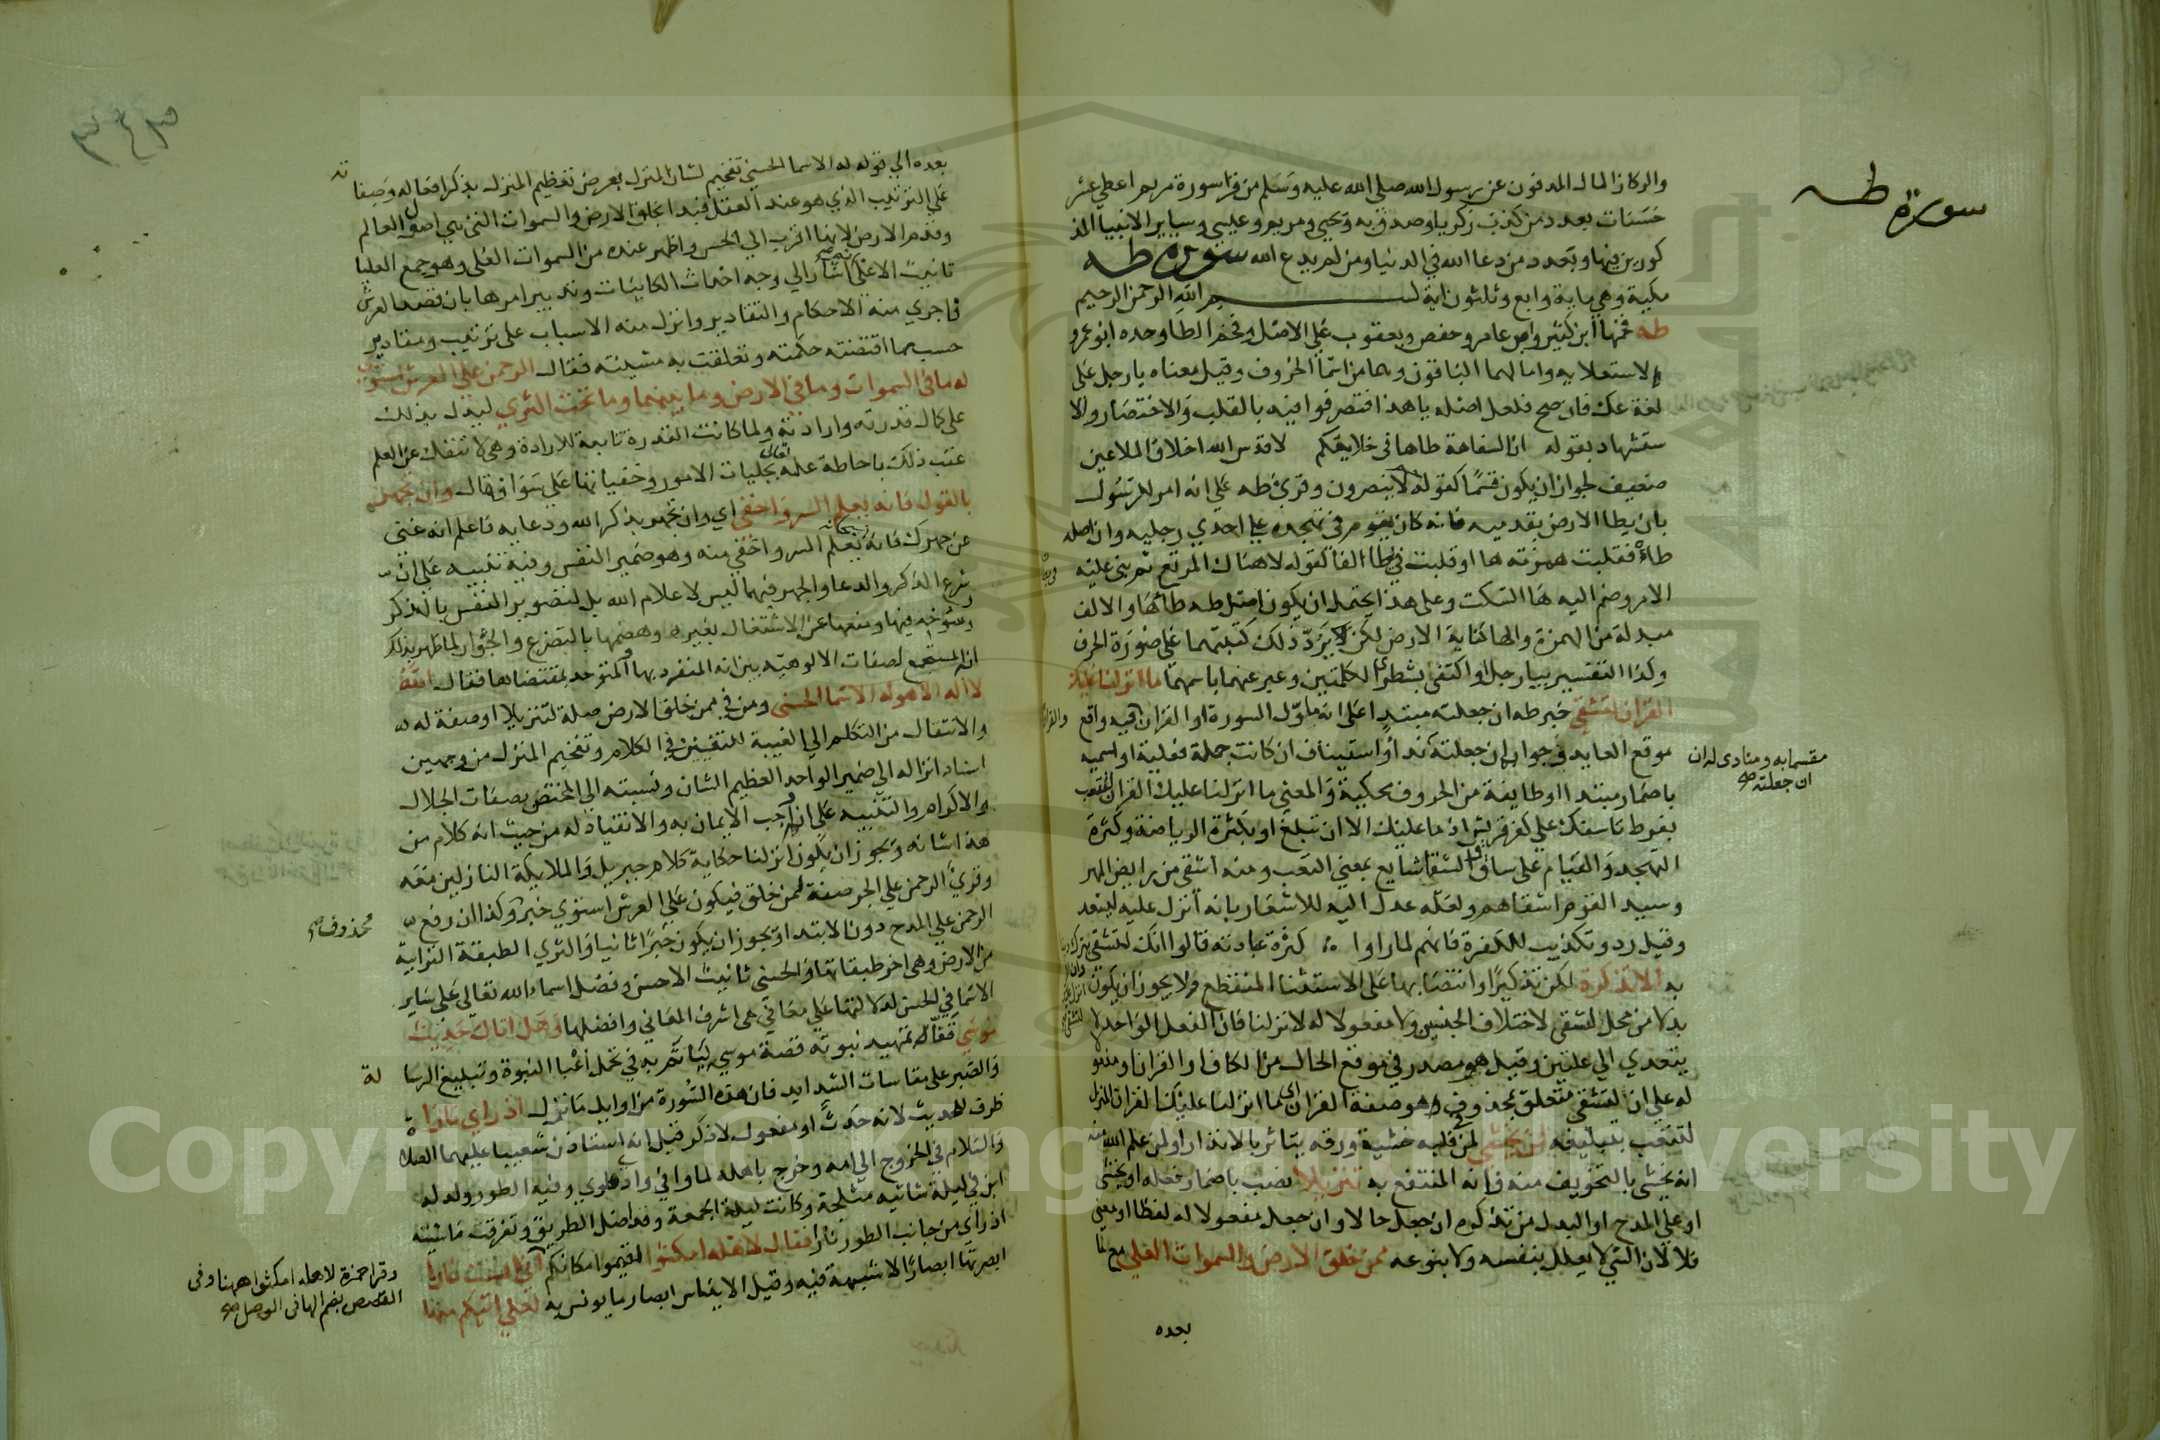 سورة طه
والركاز المال المدفون عن رسول الله صلي الله عليه وسلم من قرا سورة مريم اعطي عشر
حسنات بعدد من كذب زكريا وصدق به ويحيي ومريم وعيسي وساير الانبيا المذ
كورين فيها وبعدد من دعا الله في الدنيا ومن لم يدع الله سورة طه
مكية وهي ماية واربع وثلثون اية بسم الله الرحمن الرحيم
طه فخمها ابن كثير وابن عامر وحفص ويعقوب علي الاصل وفخم الطا وحده ابو عمرو
لاستعلايه وامالهما الباقون وهما من اسما الحروف وقيل معناه يا رجل علي
لغة عك فان صح فلعل اصله يا هذا فتصرفوا فيه بالقلب والاختصار والا
ستشهاد بقوله ان السفاهة طاها في خلايقكم لا قدس الله اخلاق الملاعين
ضعيف لجواز ان يكون قسما كقوله لا ينصرون وقري طه علي انه امر للرسول
بان يطا الارض بقدميه فانه كان يقوم في تهجده علي احدي رجليه وان اصله
طاء فقلبت همزته ها او قلبت في يطا الفا كقوله لا هناك المرتع ثم بني عليه
الامر وضم اليه ها السكت وعلي هذا يحتمل ان يكون اصل طه طاها والالف
مبدلة من الهمزة والها كناية الارض لكن يرد ذلك كتبتهما علي صورة الحرف
وكذا التفسير بيا رجل او اكتفي بشطري الكلمتين وعبر عنهما باسمهما ما انزلنا عليك
القران لتشقي خبر طه ان جعلته مبتدا علي انه ماول السورة او القران فيه واقع
موقع العايد وجواب ان جعلته ندا واستيناف ان كانت جملة فعلية او اسمية
مقسما به ومنادي له ان
ان جعلته صح
باضمار مبتدا او طايفة من الحروف محكية والمعني ما انزلنا عليك القران لتتعب
بفرط تاسفك علي كفر قريش اذ ما عليك الا ان تبلغ او بكثرة الرياضة وكثرة
التهجد والقيام علي ساق والشقا شايع بمعني التعب ومنه اشقي من رايض المهر
وسيد القوم اشقاهم ولعله عدل اليه للاشعار بانه انزل عليه ليسعد
وقيل رد وتكذيب للكفرة فانهم لما راوا كثرة عبادته قالوا انك لتشقي بترك ديننا
به الا تذكرة لكن تذكيرا وانتصابها علي الاستثنا المنقطع ولا يجوز ان يكون
بدلا من محل لتشقي لاختلاف الجنسين ولا مفعولا له لانزلنا فان الفعل الواحد لا
يتعدي الي علتين وقيل هو مصدر في موقع الحال من الكاف او القران او مفعو
له علي ان لتشقي متعلق بمحذوف هو صفة القران اي ما انزلنا عليك القران المنزل
لتتعب بتبليغه لمن يخشي لمن في قلبه خشية ورقه يتاثر بالانذار او لمن علم الله منه
انه يخشي بالتخويف منه فانه المنتفع به تنزيلا نصب باضمار فعله او بيخشي
او علي المدح او البدل من تذكرة ان جعل حالا وان جعل مفعولا له لفظا او معني
فلا لان الشي لا يعلل بنفسه ولا بنوعه ممن خلق الارض والسموات العلي مع ما
بعده
بعده الي قوله له الاسما الحسني تفخيم لشان المنزل بعرض تعظيم المنزل بذكر افعاله وصفا
ته
علي الترتيب الذي هو عند العقل فبدا بخلق الارض والسموات التي هي اصول العالم
وقدم الارض لانها اقرب الي الحس واظهر عنده من السموات العلي وهو جمع العليا
تانيث الاعلي ثم اشار الي وجه احداث الكاينات وتدبير امرها بان قصد العرش
فاجري منه الاحكام والتقادير وانزل منه الاسباب علي ترتيب ومقادير
حسب ما اقتضته حكمته وتعلقت به مشيئته فقال الرحمن علي العرش استوي
له ما في السموات وما في الارض وما بينهما وما تحت الثري ليدل بذلك
علي كمال قدرته وارادته ولما كانت القدرة تابعة للارادة وهي لا تنفك عن العلم
عقب ذلك باحاطة علمه تعالي بجليات الامور وخفياتها علي سوا فقال وان تجهر
بالقول فانه يعلم السر واخفي اي وان تجهر بذكر الله ودعايه فاعلم انه غني
عن جهرك فانه سبحانه يعلم السر واخفي منه وهو ضمير النفس وفيه تنبيه علي ان
شرع الذكر والدعا والجهر فيهما ليس لاعلام الله بل لتصوير النفس بالذكر
ورسوخه فيها ومنعها عن الاشتغال بغيره وهضمها بالتضرع والجؤار لما ظهر بذلك
انه المستجمع لصفات الالوهية بين انه المتفرد بها والمتوحد بمقتضاها فقال الله
لا اله الا هو له الاسما الحسني ومن في ممن خلق الارض صلة لتنزيلا او صفة له
والانتقال من التكلم الي الغيبة للتفنن في الكلام وتفخيم المنزل من وجهين
اسناد انزاله الي ضمير الواحد العظيم الشان ونسبته الي المختص بصفات الجلال
والاكرام والتنبيه علي انه واجب الايمان به والانقياد له من حيث انه كلام من
هذا شانه ويجوز ان يكون انزلنا حكاية كلام جبريل والملايكة النازلين معه
وقري الرحمن علي الجر صفة لمن خلق فيكون علي العرش استوي خبر محذوف وكذا ان رفع
محذوف صح
الرحمن علي المدح دون الابتدا ويجوز ان يكون خبرا ثانيا والثري الطبقة الترابية
من الارض وهي اخر طبقاتها والحسني تانيث الاحسن وفضل اسماء الله تعالي علي ساير
الاسما في الحسن لدلالتها علي معاني هي اشرف المعاني وافضلها وهل اتاك حديث
موسي قفا تمهيد نبوته قصة موسي لياتم به في تحمل اعبا النبوة وتبليغ الرسا
لة
والصبر علي مقاسات الشدايد فان هذه السورة من اوايل ما نزل اذ راي نارا
ظرف للحديث لانه حدث او مفعول لاذكر قيل انه استاذن شعيبا عليهما الصلاة
والسلام في الخروج الي امه وخرج باهله لما وافي وادي طوي وفيه الطور ولد له
ابن في ليلة شاتيه مثلجة وكانت ليلة الجمعة وقد اضل الطريق وتفرقت ماشيته
اذ راي من جانب الطور نارا فقال لاهله امكثوا اقيموا مكانكم اني انست نارا
وقرا حمزة لاهله امكثوا ههنا وفي
القصص بضم الها في الوصل صح
ابصرتها ابصارا لا شبهة فيه وقيل الايناس ابصار ما يونس به لعلي اتيكم منها
Copyright © King Saud University